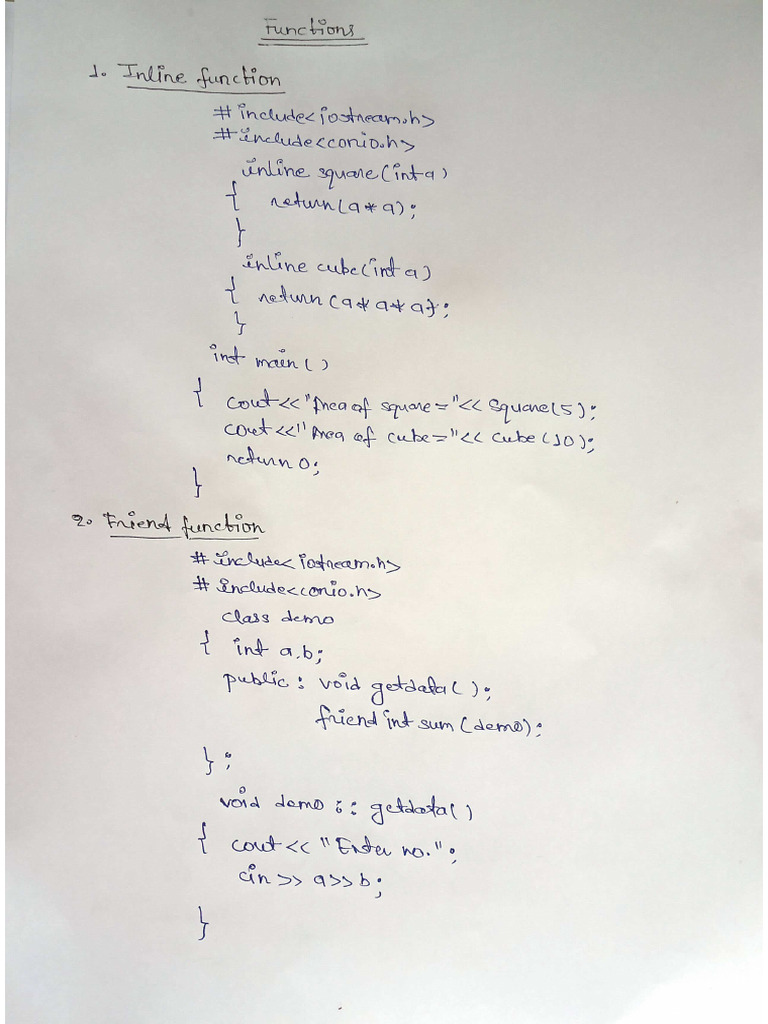 Functions
1. Inline function
#include<iostream.h>
#include<conio.h>
inline square(int a)
{ return(a*a);
}
inline cube(int a)
{ return(a*a*a);
}
int main()
{ cout<<"Area of square="<< square(5);
cout<<"Area of cube="<< cube(10);
return 0;
}
2. Friend function
#include<iostream.h>
#include<conio.h>
class demo
{ int a,b;
public: void getdata();
friend int sum(demo);
};
void demo :: getdata()
{ cout<< "Enter no.";
cin>> a>>b;
}